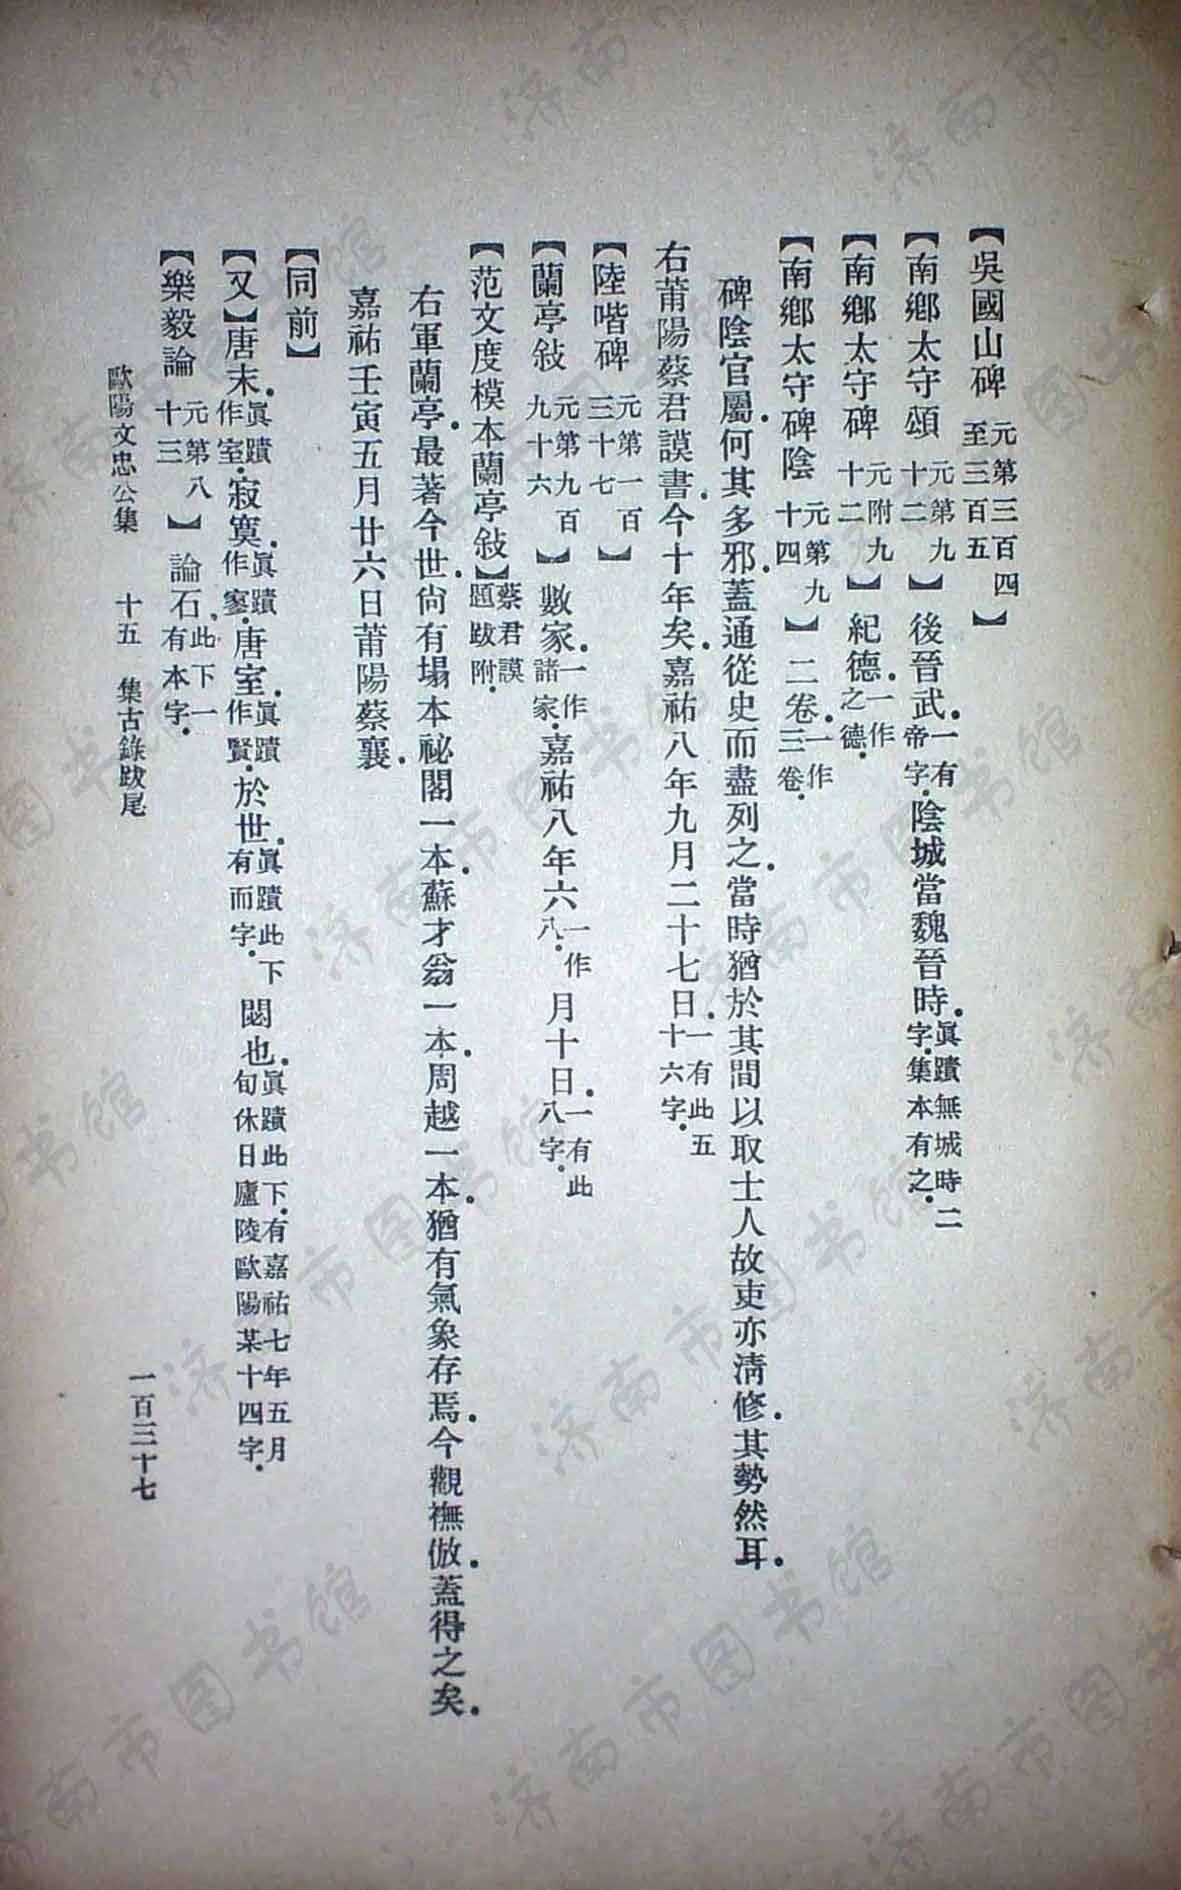 【吳國山碑元第三百四至三百五】
【南鄉太守頌元第九十二】後晉武.一有帝字.陰城當魏晉時.眞蹟無城時二字.集本有之.
【南鄉太守碑元附九十二】紀德.一作之德.
【南鄉太守碑陰元第九十四】二卷.一作三卷.
碑陰官屬.何其多邪.蓋通從史而盡列之.當時猶於其間以取士人故吏亦淸修.其勢然耳.
右莆陽蔡君謨書.今十年矣.嘉祐八年九月二十七日.一有此五十六字.
【陸喈碑元第一百三十七】
【蘭亭敍元第九百九十六】數家.一作諸家.嘉祐八年六一作八.月十日.一有此八字.
【范文度模本蘭亭敍】蔡君謨題跋附.
右軍蘭亭.最著今世.尙有塌本祕閣一本.蘇才翁一本.周越一本.猶有氣象存焉.今觀橅倣.蓋得之矣.
嘉祐壬寅五月廿六日莆陽蔡襄.
【同前】
【又】唐末.眞蹟作室.寂寞.眞蹟作寥.唐室.眞蹟作賢.於世.眞蹟此下有而字.閟也.眞蹟此下.有嘉祐七年五月旬休日廬陵歐陽某十四字.
【樂毅論元第八十三】論石.此下一有本字.
歐陽文忠公集　十五　集古錄跋尾
一百三十七
济南市图书馆